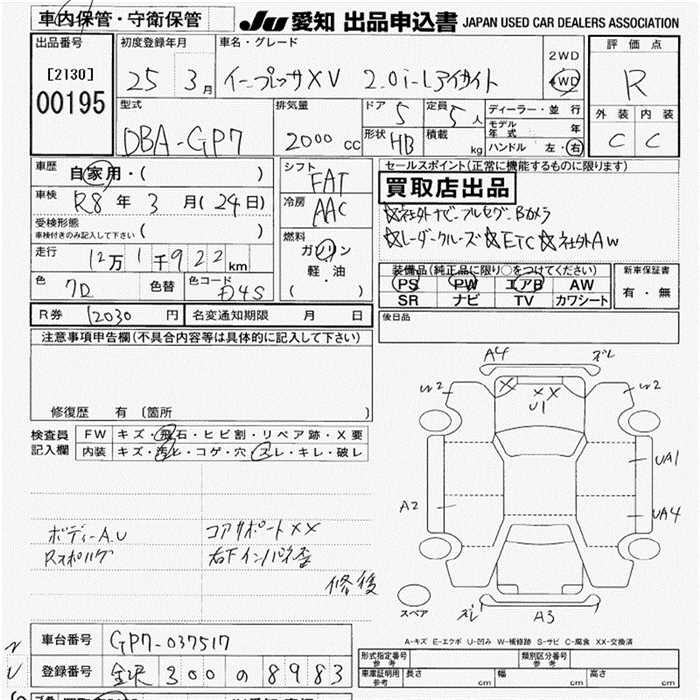 車内保管・守衛保管
JU 愛知 出品申込書 JAPAN USED CAR DEALERS ASSOCIATION
出品番号
[2130]
00195
初度登録年月
25 3月
車名・グレード
インプレッサXV 2.0i-Lアイサイト
2WD
4WD
評価点
R
外装 内装
C C
型式
DBA-GP7
排気量
2000 cc
ドア 5
形状 HB
定員 5人
積載 kg
ディーラー・並行
モデル年式 年
ハンドル 左・右
車歴
自家用・( )
車検
R8年 3月(24日)
受検形態
車検付きのみ記入して下さい ( )
走行
12万1千922km
色
7D
色替
色コード
D4S
シフト
FAT
冷房
AAC
燃料
ガソリン
軽・油
( )
セールスポイント(正常に機能するものに限ります)
買取店出品
☆社外ナビ フルセグ Bカメラ
☆レーダークルーズ☆ETC☆社外AW
装備品(純正品に限り○をつけてください)
PS PW エアB AW
SR ナビ TV カワシート
新車保証書
有・無
R券 12030円
名変通知期限 月 日
後日品
注意事項申告欄(不具合内容等は具体的に記入して下さい)
修復歴 有 (箇所 )
検査員記入欄
FW キズ・飛石・ヒビ割・リペア跡・X要
内装 キズ・汚れ・コゲ・穴・スレ・キレ・破レ
ボディーA.U
コアサポートXX
右下インパネ歪
修復
A4
ズレ
W2
W2
XX
U1
UA1
A2
UA4
スペア
ズレ
A3
A-キズ E-エクボ U-凹み W-補修跡 S-サビ C-腐食 XX-交換済
車台番号 GP7-037517
登録番号 金沢 300 の 8983
形式指定番号 参考
類別区分番号 参考
車庫証明用 参考
長さ cm
幅 cm
高さ cm